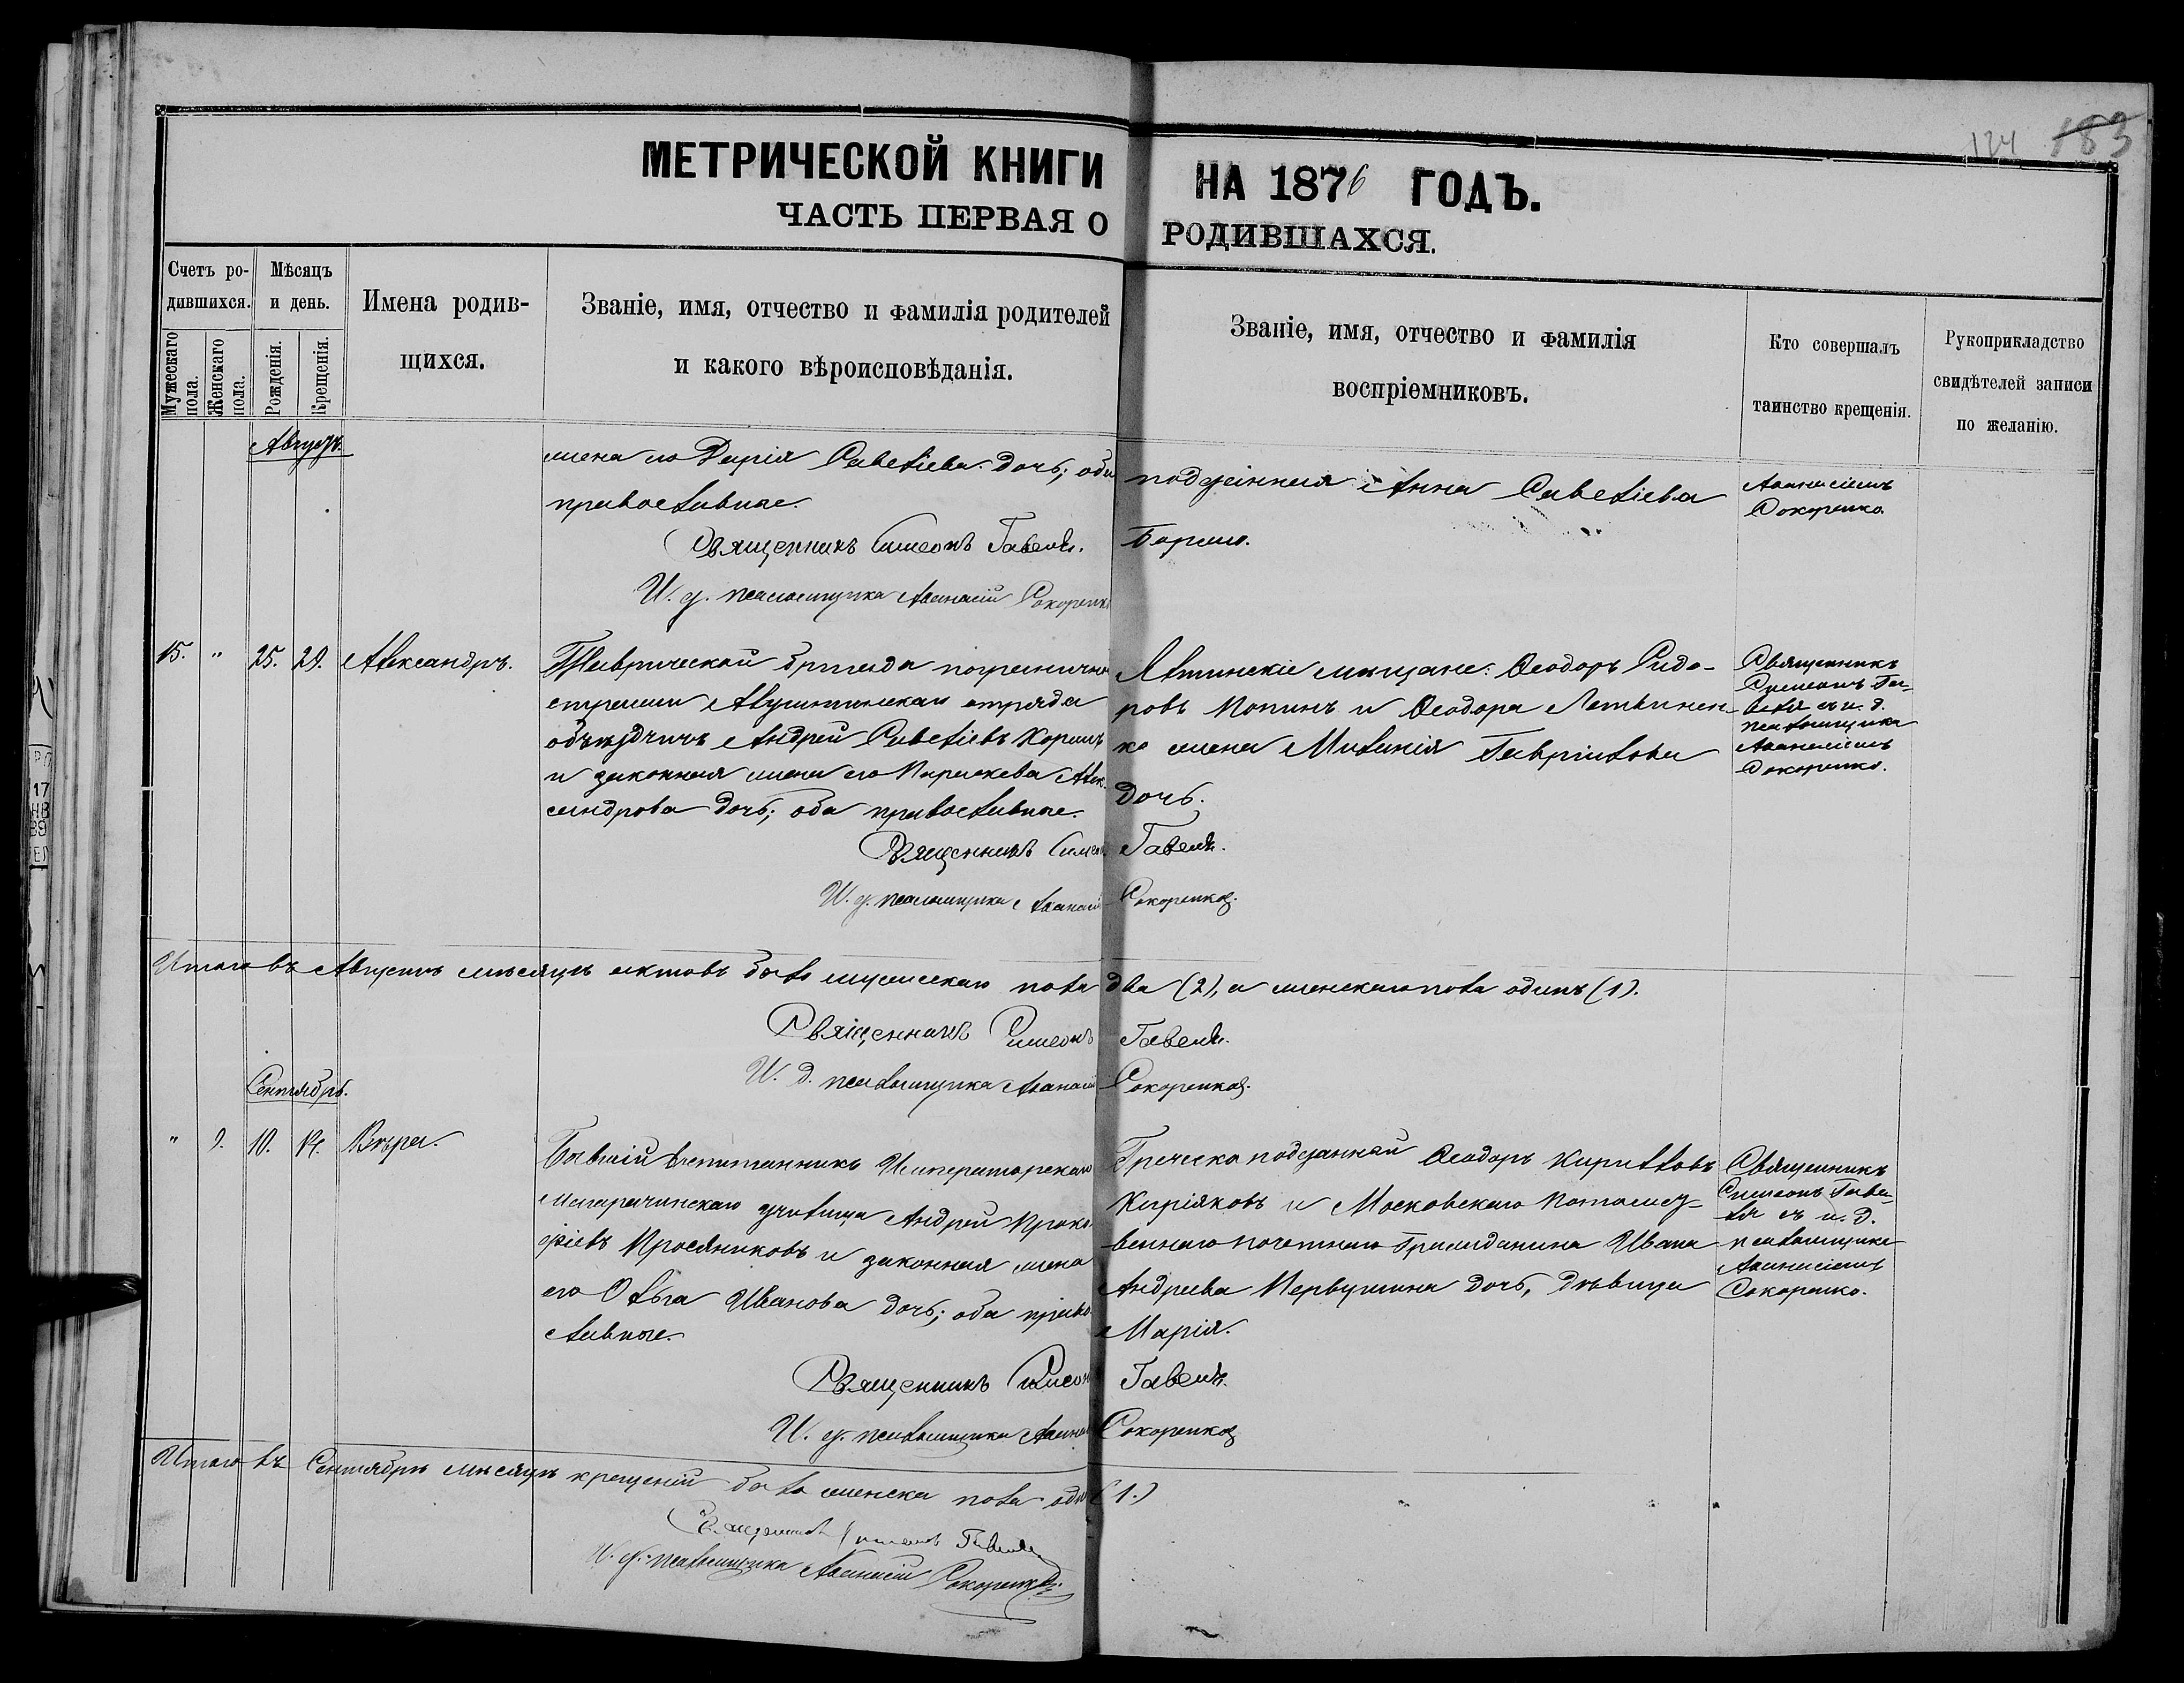 124 183
МЕТРИЧЕСКОЙ КНИГИ НА 1876 ГОДЪ.
ЧАСТЬ ПЕРВАЯ О РОДИВШАХСЯ.
Счетъ ро-
дившихся.
Мужескаго пола.
Женскаго пола.
Мѣсяцъ
и день.
Рожденія.
Крещенія.
Имена родив-
щихся.
Званіе, имя, отчество и фамилія родителей
и какого вѣроисповѣданія.
Званіе, имя, отчество и фамилія
воспріемниковъ.
Кто совершалъ
таинство крещенія.
Рукоприкладство
свидѣтелей записи
по желанію.
Августъ.
жена его Дарія Савеліева дочь; оба
православные.
Священникъ Симеонъ Гавель.
И. д. псаломщика Аѳанасій Сокоренко
подданная Анна Савеліева
Аѳанасіемъ
Сокоренко.
15. " 25. 29. Александръ.
Таврической бригады пограничной
стражи Алуштинскаго отряда
объѣздчикъ Андрей Савеліевъ Корашъ
и законная жена его Параскева Алек-
сандрова дочь; оба православные.
Священникъ Симеонъ Гавель.
И. д. псаломщика Аѳанасій Сокоренко.
Ялтинскіе мѣщане: Ѳеодоръ Сидо-
ровъ Попинъ и Ѳеодора Литвинен-
ко жена Миланія Гавріилова
дочь.
Священникъ
Симеонъ Га-
веля съ и. д.
псаломщика
Аѳанасіемъ
Сокоренко.
Итого въ Августѣ мѣсяцѣ актовъ было мужескаго пола два (2), а женскаго пола одинъ (1).
Священникъ Симеонъ Гавель.
И. д. псаломщика Аѳанасій Сокоренко.
Сентябрь.
" 9. 10. 14. Вѣра.
Бывшій воспитанникъ Императорскаго
Магарачинскаго училища Андрей Проко-
фіевъ Просяниковъ и законная жена
его Ольга Иванова дочь; оба право-
славные.
Священникъ Симеонъ Гавель.
И. д. псаломщика Аѳанасій Сокоренко
Греческо подданной Ѳеодоръ Кирилловъ
Киріяковъ и Московскаго Потомст-
веннаго почетнаго Гражданина Ивана
Андреева Первушина дочь, дѣвица
Марія.
Священникъ
Симеонъ Гаве-
ля съ и. д.
псаломщика
Аѳанасіемъ
Сокоренко.
Итого въ Сентябрѣ мѣсяцѣ крещеній было женска пола одно (1.)
Священникъ Симеонъ Гавель
И. д. псаломщика Аѳанасій Сокоренко.